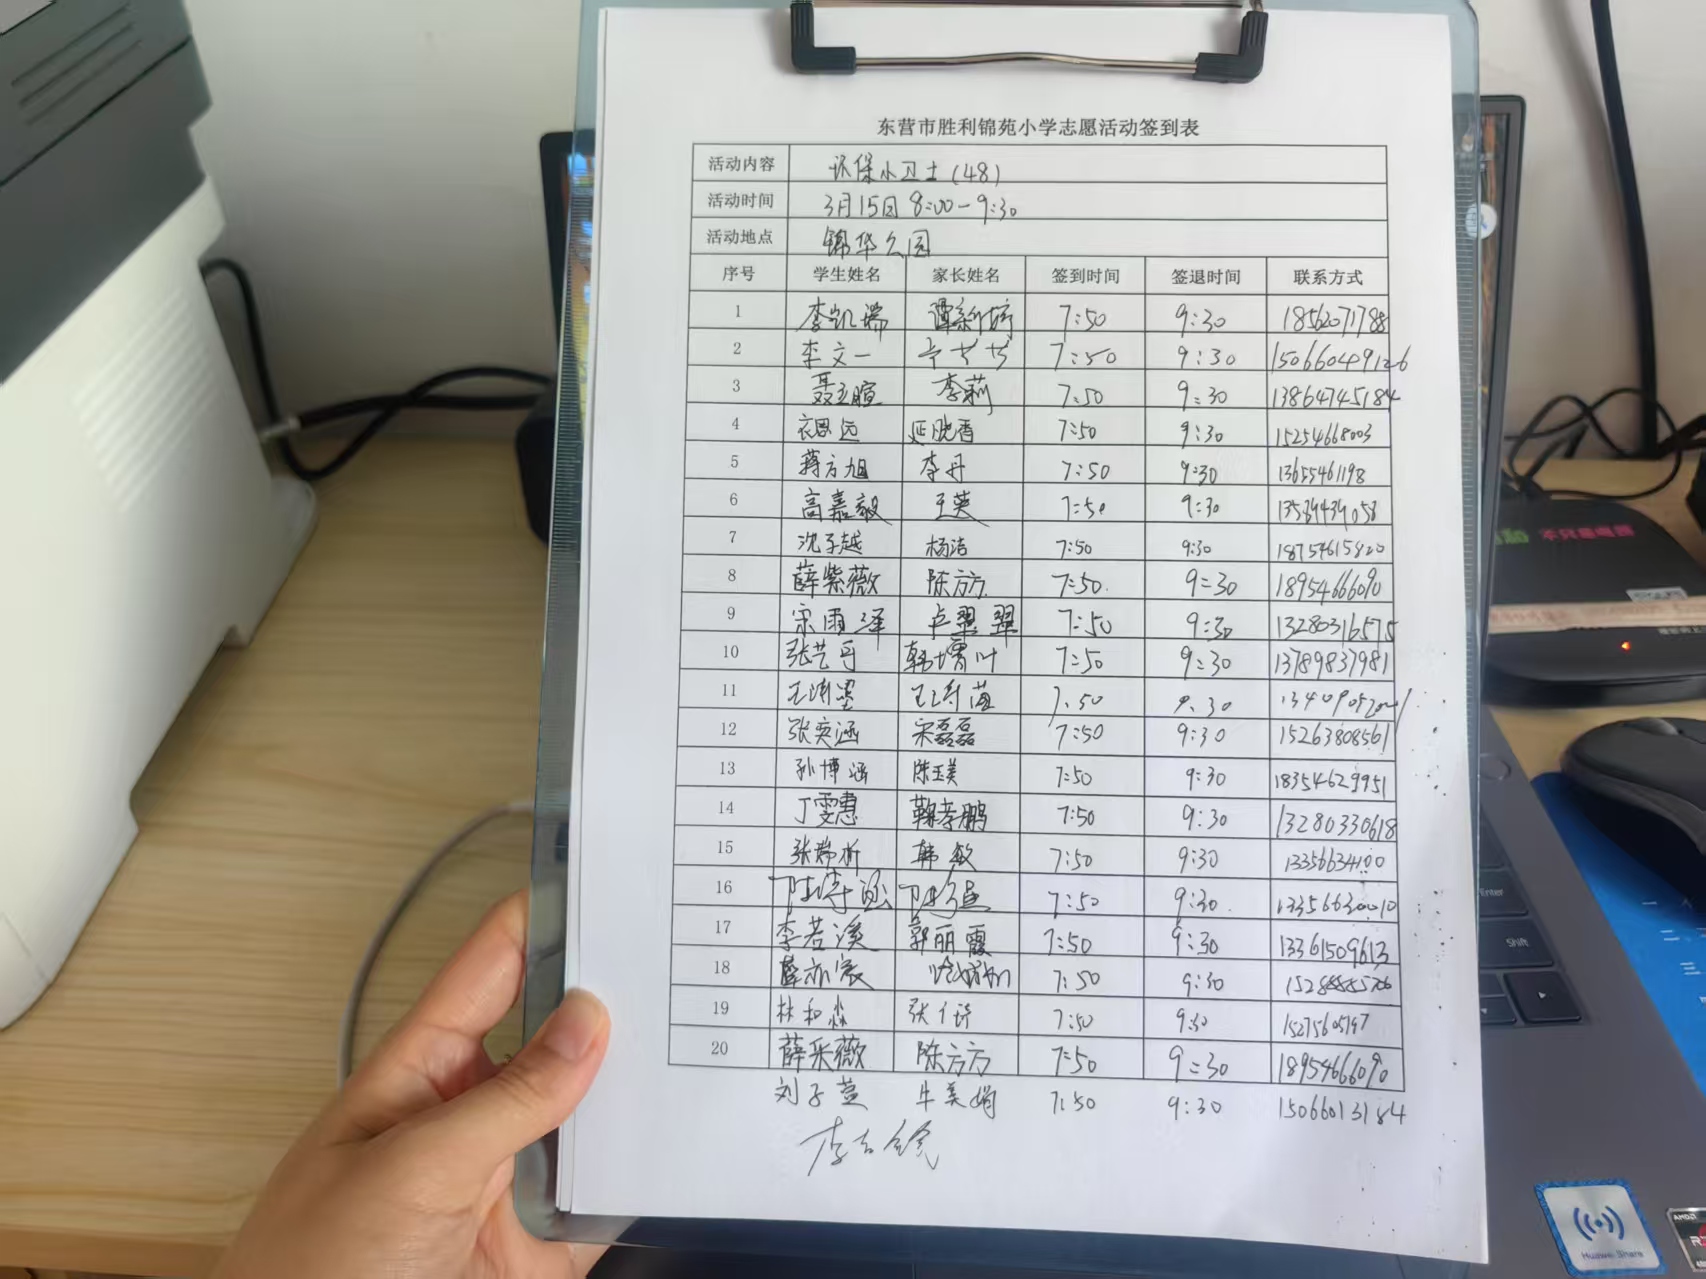 东营市胜利锦苑小学志愿活动签到表
活动内容 环保小卫士(48)
活动时间 3月15日 8:00-9:30
活动地点 锦华公园
序号 学生姓名 家长姓名 签到时间 签退时间 联系方式
1 李凯瑞 谭新婷 7:50 9:30 18562071788
2 李文一 7:50 9:30 15066049126
3 聂立暄 李莉 7:50 9:30 13864745184
4 衣思远 延晓香 7:50 9:30 15254668003
5 蒋方旭 李丹 7:50 9:30 13655461198
6 高嘉毅 王英 7:50 9:30 13589439058
7 沈子越 杨洁 7:50 9:30 18754615820
8 薛紫薇 陈方方 7:50 9:30 18954666090
9 宋雨泽 卢翠翠 7:50 9:30 13280316575
10 张艺丹 韩增叶 7:50 9:30 13789837981
11 7:50 9:30
12 张奕涵 宋磊磊 7:50 9:30 15263808561
13 孙博涵 陈玉美 7:50 9:30 18354629951
14 丁雯惠 鞠孝鹏 7:50 9:30 13280330618
15 韩敏 7:50 9:30 13356634100
16 7:50 9:30 13356630010
17 李若溪 郭丽霞 7:50 9:30 13361509613
18 薛亦宸 7:50 9:30
19 林和淼 7:50 9:30 15275605797
20 薛采薇 陈方方 7:50 9:30 18954666090
刘子萱 牛美娟 7:50 9:30 15066013184
Enter
Shift
Huawei Share
AMD